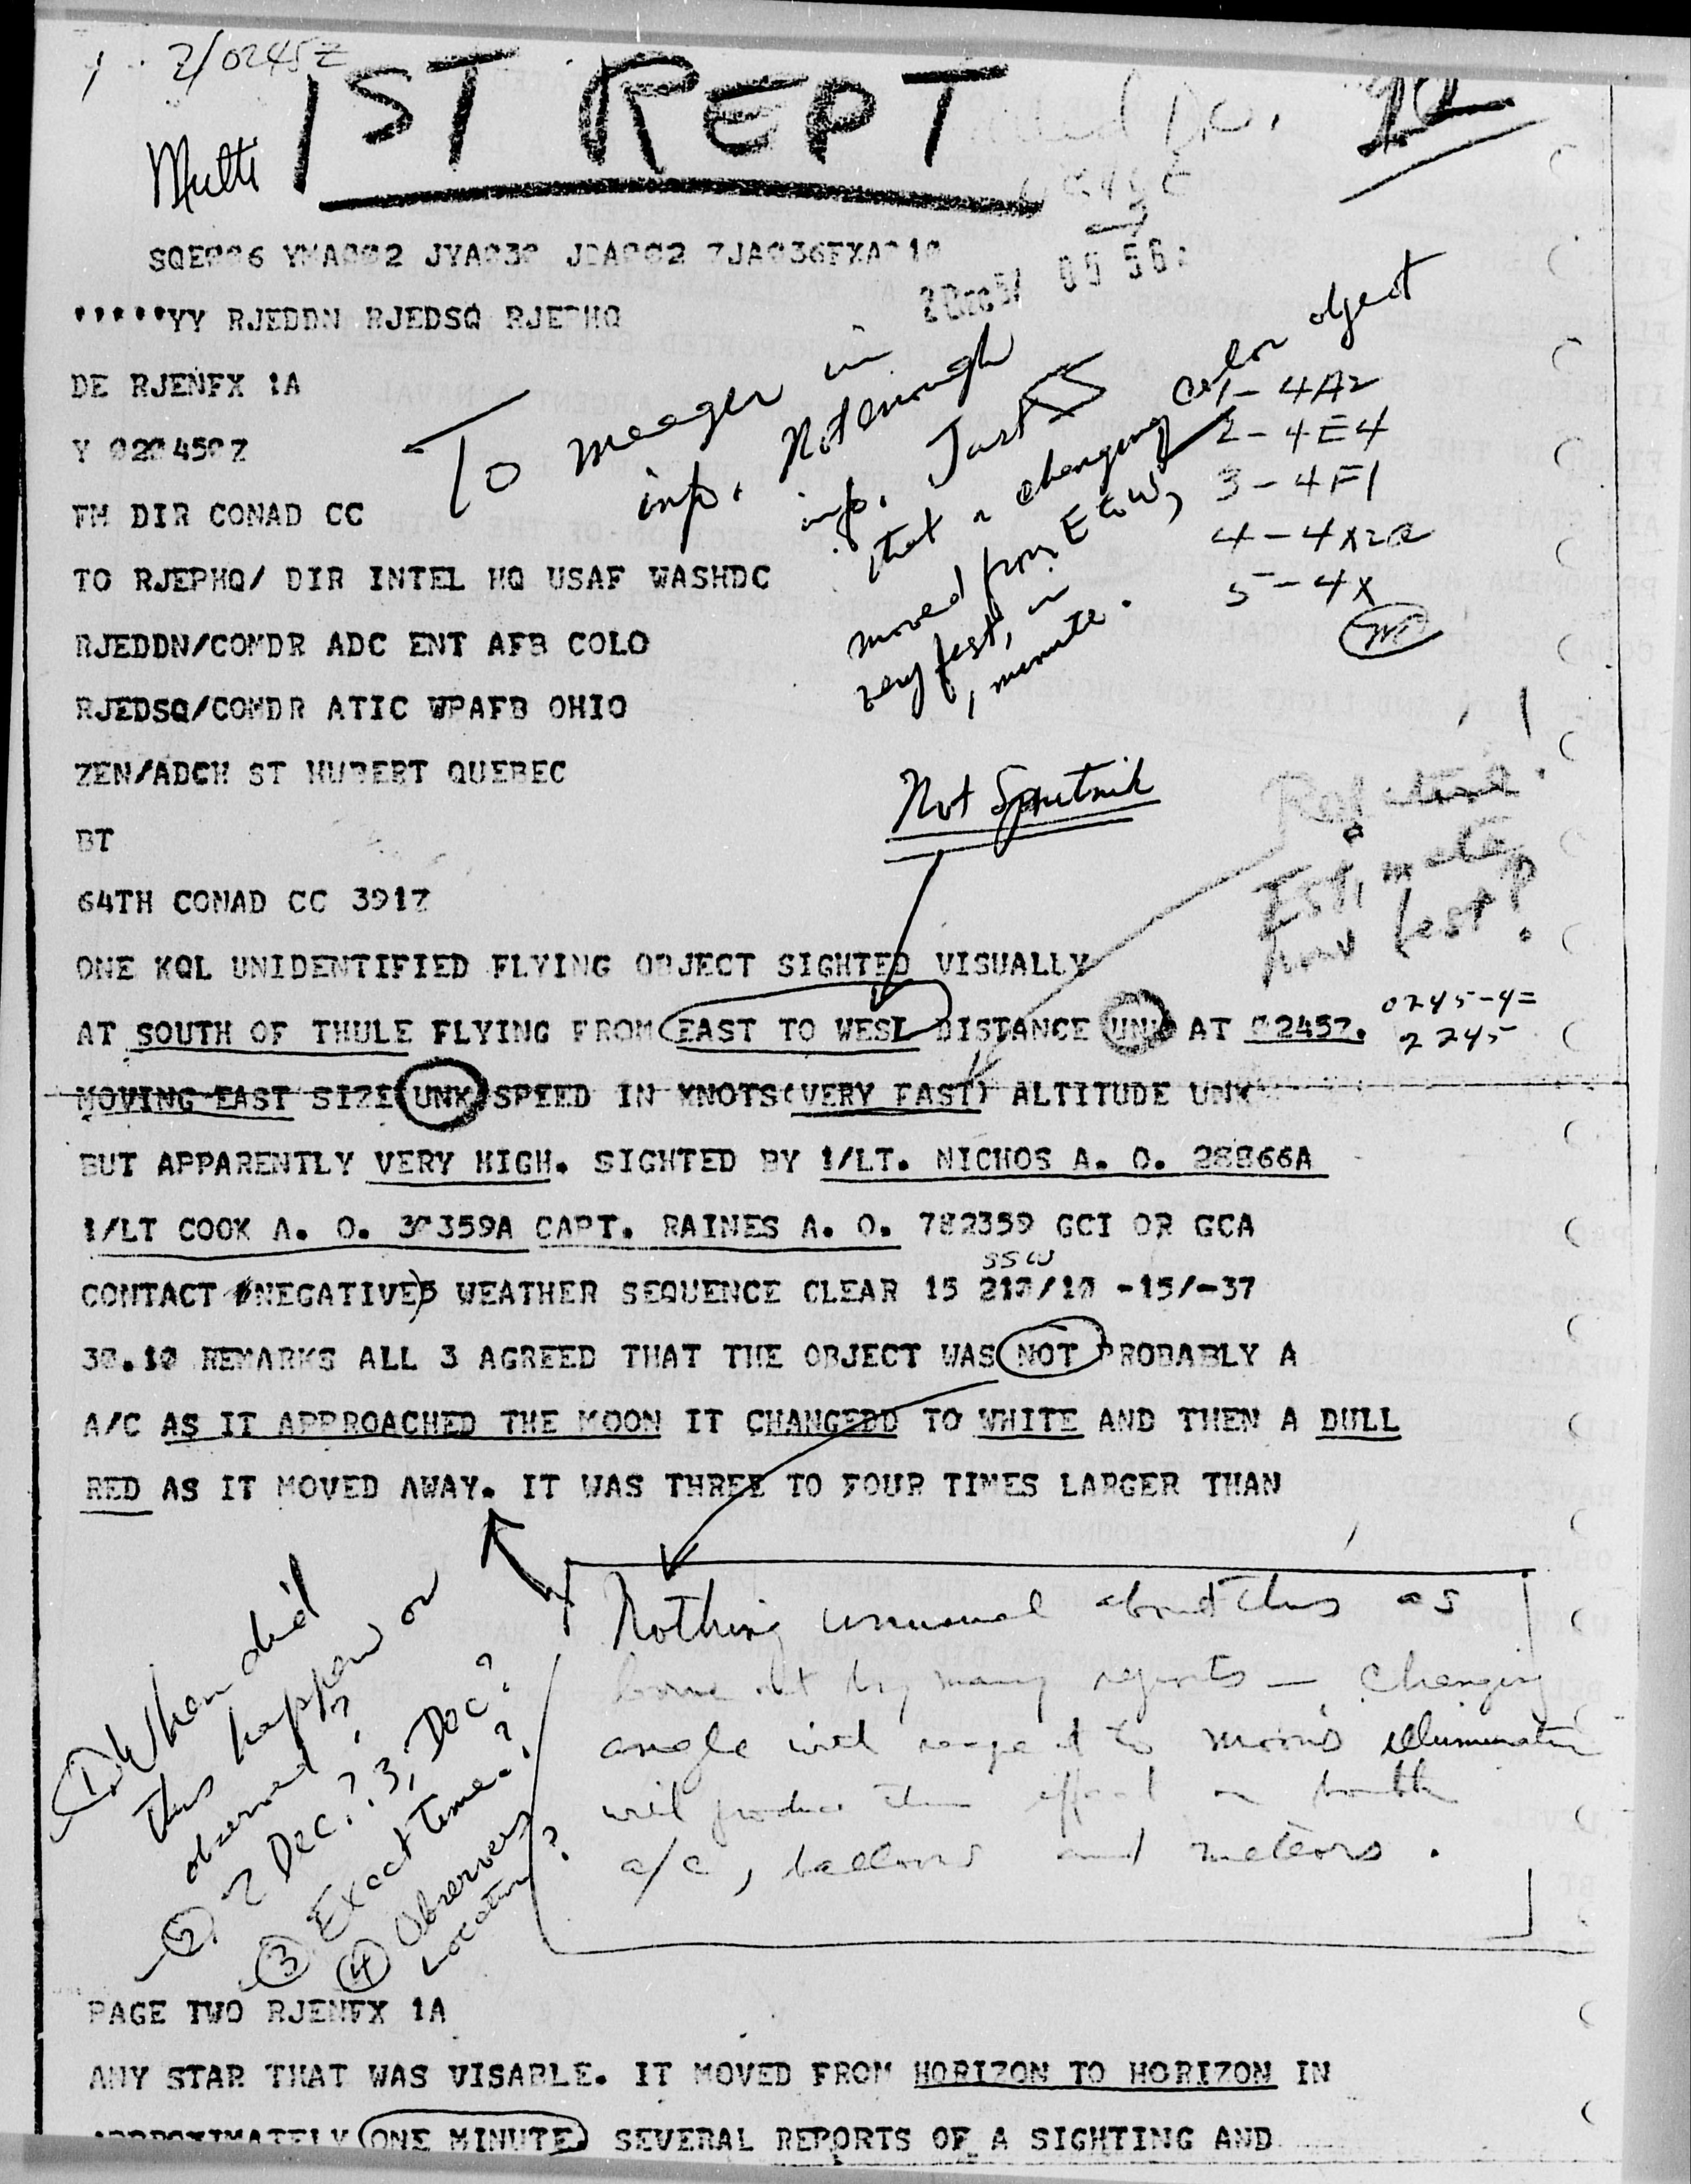 2/0245Z
1ST REPT
Multi
SQE006 YMA002 JYA030 JDA002 ZJA036FXA010
'''''YY RJEDDN RJEDSQ RJEPHQ
2 Dec 57 05 56
DE RJENFX 1A
Y 020450Z
FM DIR CONAD CC
TO RJEPHQ/ DIR INTEL HQ USAF WASHDC
RJEDDN/COMDR ADC ENT AFB COLO
RJEDSQ/COMDR ATIC WPAFB OHIO
ZEN/ADCH ST HUBERT QUEBEC
BT
To meager in
info. Not enough
info. Just
that a changing color object
moved from E to W,
very fast, in
1 minute.
1 - 4A2
2 - 4E4
3 - 4F1
4 - 4X2a
5 - 4X
Not Sputnik
Estimate
how fast?
64TH CONAD CC 391Z
ONE KQL UNIDENTIFIED FLYING OBJECT SIGHTED VISUALLY
AT SOUTH OF THULE FLYING FROM EAST TO WEST DISTANCE UNK AT 0245Z.
0245-4=
2245
MOVING EAST SIZE UNK SPEED IN KNOTS(VERY FAST) ALTITUDE UNK
BUT APPARENTLY VERY HIGH. SIGHTED BY 1/LT. NICHOS A. O. 28866A
1/LT COOK A. O. 30359A CAPT. RAINES A. O. 782359 GCI OR GCA
SSW
CONTACT NEGATIVE) WEATHER SEQUENCE CLEAR 15 210/10 -15/-37
30.10 REMARKS ALL 3 AGREED THAT THE OBJECT WAS NOT PROBABLY A
A/C AS IT APPROACHED THE MOON IT CHANGEDD TO WHITE AND THEN A DULL
RED AS IT MOVED AWAY. IT WAS THREE TO FOUR TIMES LARGER THAN
1. When did
this happen or
observed?
2. 2 Dec?? 3, Dec?
3 Exact time??
4 Observers
Location?
Nothing unusual about this as
borne out by many reports — changing
angle with respect to moon's illumination
will produce this effect on both
a/c, balloons and meteors.
PAGE TWO RJENFX 1A
ANY STAR THAT WAS VISABLE. IT MOVED FROM HORIZON TO HORIZON IN
APPROXIMATELY ONE MINUTE SEVERAL REPORTS OF A SIGHTING AND